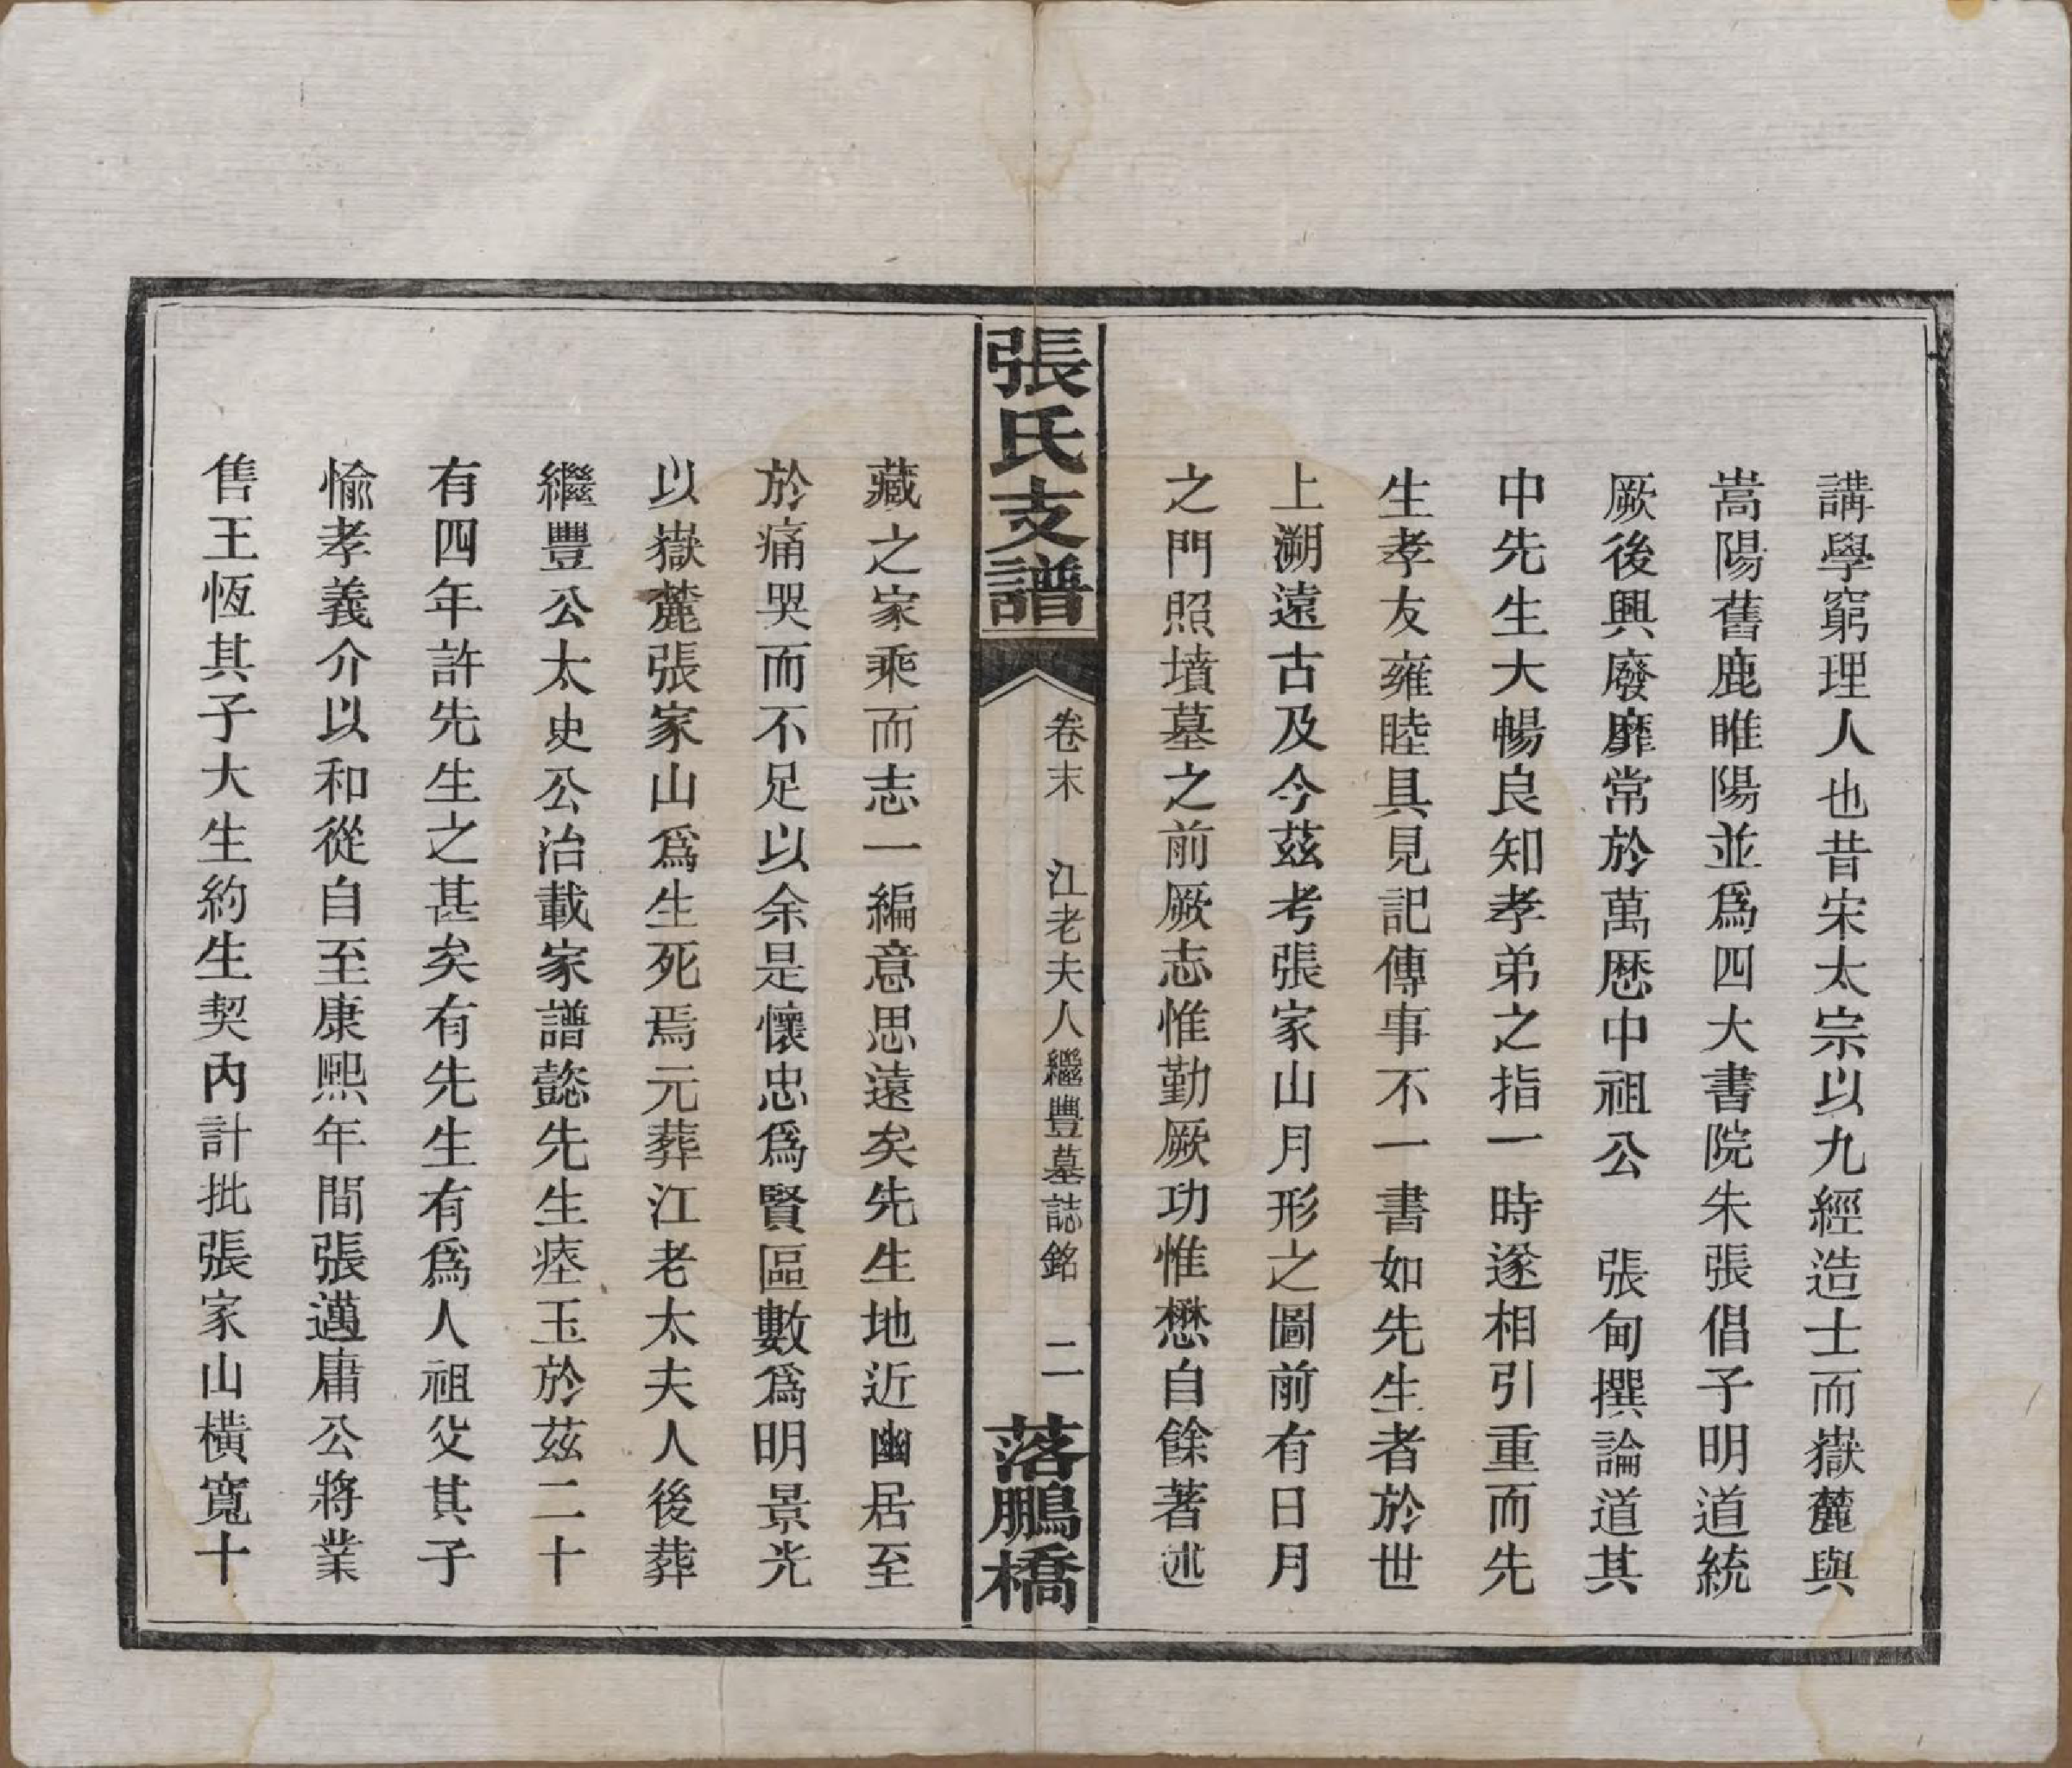 講學窮理人也昔宋太宗以九經造士而嶽麓與
嵩陽舊鹿睢陽並爲四大書院朱張倡子明道統
厥後興廢靡常於萬歷中祖公　張甸撰論道其
中先生大暢良知孝弟之指一時遂相引重而先
生孝友雍睦具見記傳事不一書如先生者於世
上溯遠古及今茲考張家山月形之圖前有日月
之門照墳墓之前厥志惟勤厥功惟懋自餘著述
張氏支譜
卷末　江老夫人繼豐墓誌銘　二
落鵬橋
藏之家乘而志一編意思遠矣先生地近幽居至
於痛哭而不足以余是懷忠爲賢區數爲明景光
以嶽麓張家山爲生死焉元葬江老太夫人後葬
繼豐公太史公治載家譜懿先生瘞玉於茲二十
有四年許先生之甚矣有先生有爲人祖父其子
愉孝義介以和從自至康熙年間張邁庸公將業
售王恆其子大生約生契內計批張家山橫寬十